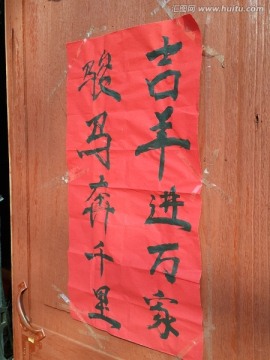 吉羊进万家
骏马奔千里
www.huitu.com